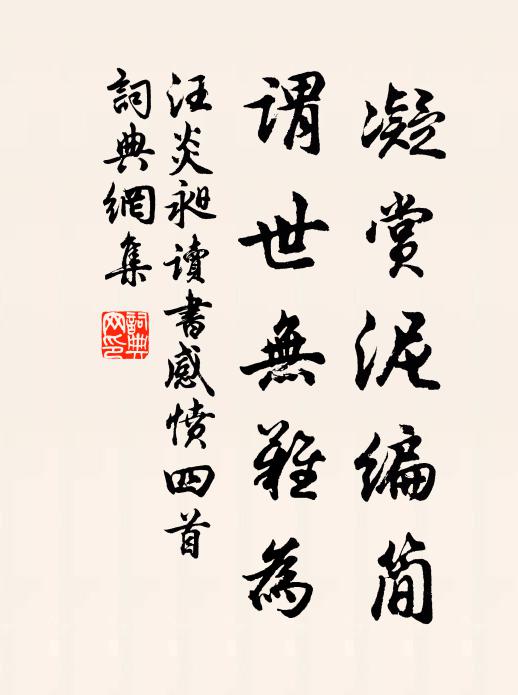 凝賞泥編簡
謂世無難為
汪炎昶讀書感憤四首
詞典網集
詞典網印